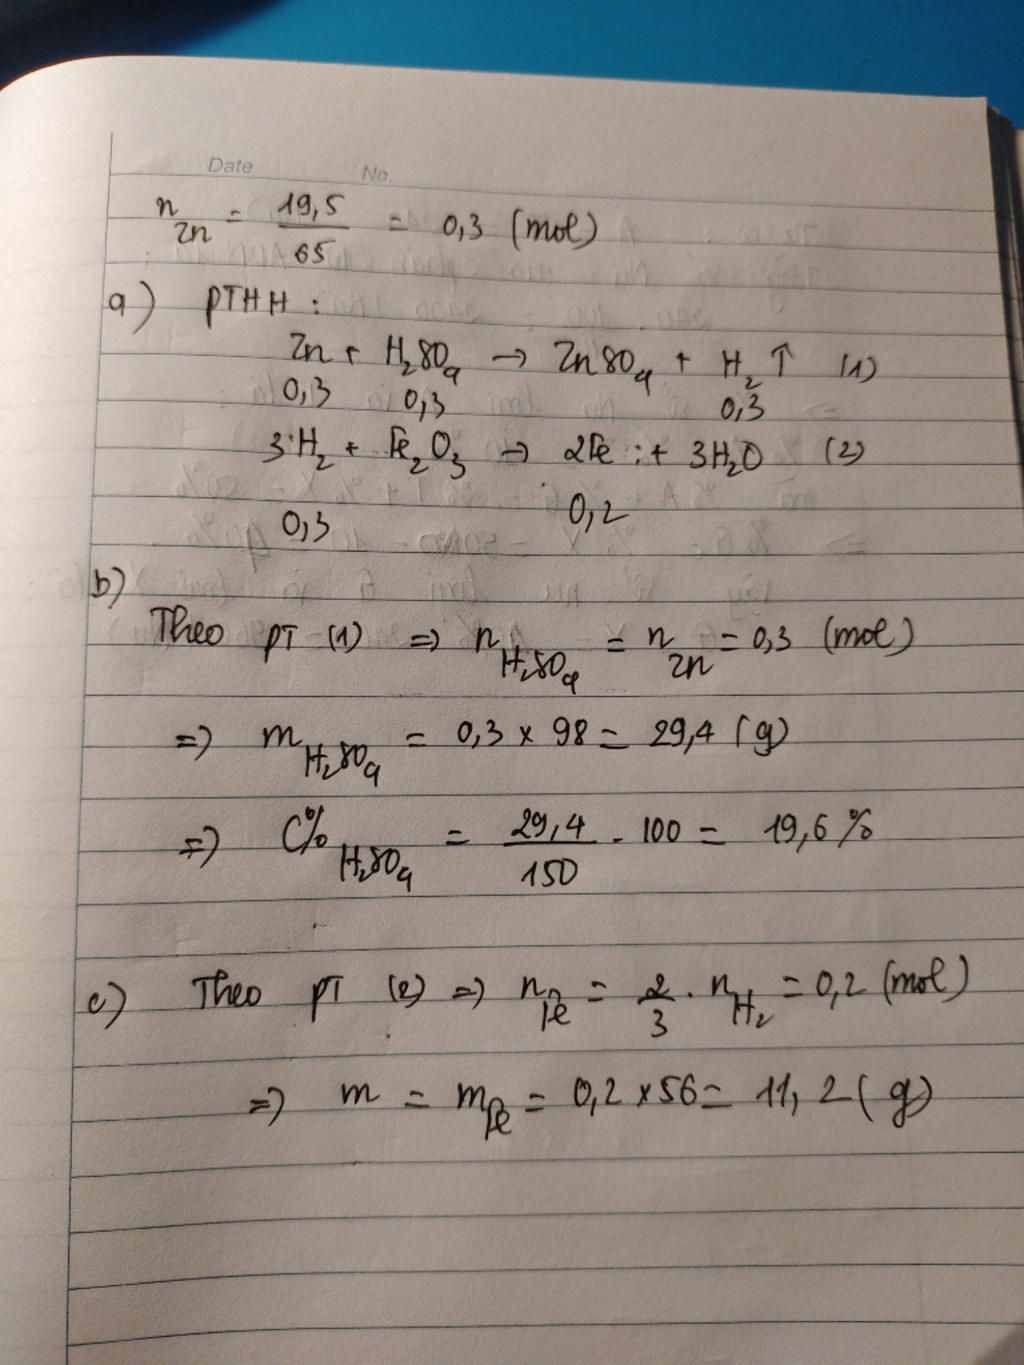 Date No.
n_Zn = 19,5/65 = 0,3 (mol)
a) PTHH :
Zn + H₂SO₄ → ZnSO₄ + H₂↑ (1)
0,3 0,3 0,3
3H₂ + Fe₂O₃ → 2Fe + 3H₂O (2)
0,3 0,2
b)
Theo PT (1) => n_H₂SO₄ = n_Zn = 0,3 (mol)
=> m_H₂SO₄ = 0,3 x 98 = 29,4 (g)
=> C%_H₂SO₄ = 29,4/150 . 100 = 19,6 %
c) Theo PT (2) => n_Fe = 2/3 . n_H₂ = 0,2 (mol)
=> m = m_Fe = 0,2 x 56 = 11,2 (g)